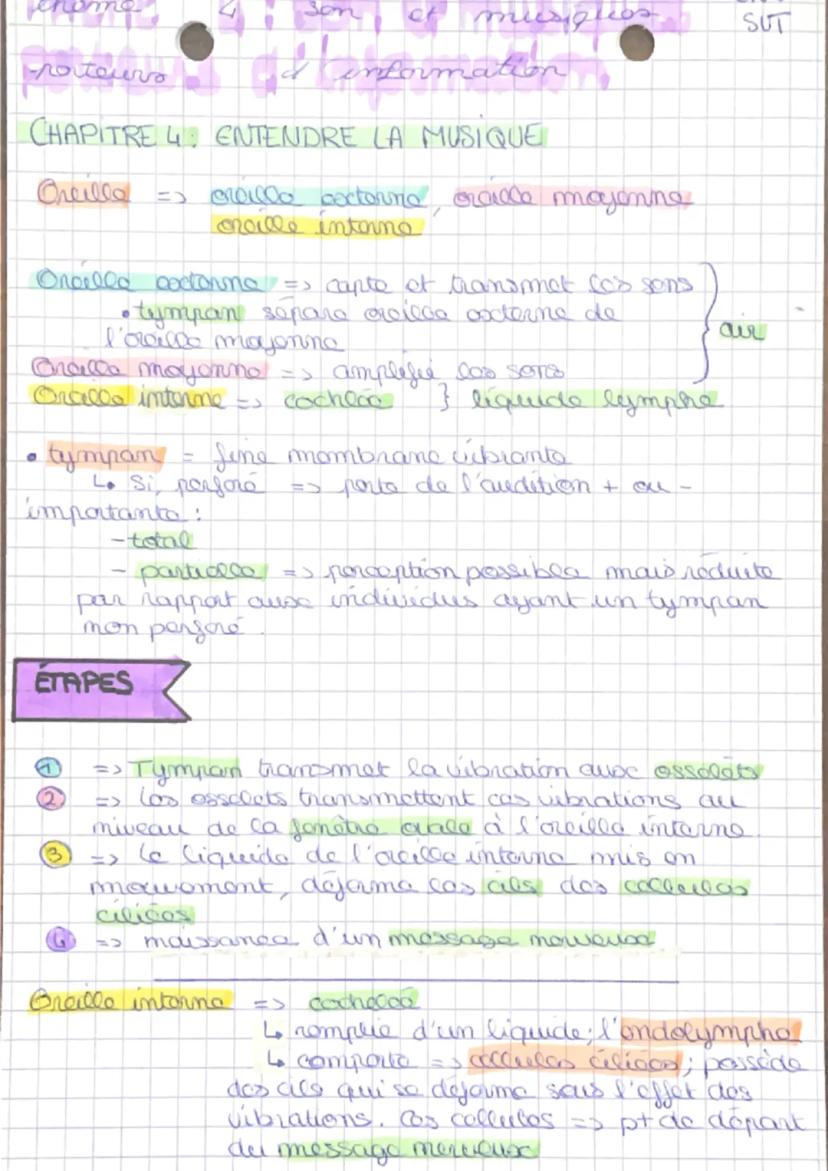 thème 4 : son et musiques
SVT
porteurs d'information
CHAPITRE 4 : ENTENDRE LA MUSIQUE
Oreille => oreille externe, oreille moyenne
oreille interne
Oreille externe => capte et transmet les sons
• tympan sépare oreille externe de
l'oreille moyenne
air
Oreille moyenne => amplifié les sons
Oreille interne => cochlée } liquide lymphe
• tympan = fine membrane vibrante
↳ Si, perforé => perte de l'audition + ou -
importante :
- total
- partielle => perception possible mais réduite
par rapport aux individus ayant un tympan
non perforé.
ÉTAPES
1 => Tympan transmet la vibration aux osselets
2 => les osselets transmettent ces vibrations au
niveau de la fenêtre ovale à l'oreille interne.
3 => le liquide de l'oreille interne mis en
mouvement, déforme les cils des cellules
ciliées
4 => naissance d'un message nerveux
Oreille interne => cochlée
↳ remplie d'un liquide; l'endolymphe
↳ comporte => cellules ciliées; possède
des cils qui se déforme sous l'effet des
vibrations. Ces cellules => pt de départ
du message nerveux